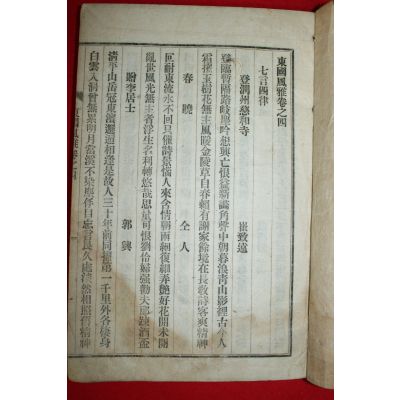 東國風雅卷之四
七言四律
登潤州慈和寺 崔致遠
登臨暫隔路岐塵吟想興亡恨益新畵角聲中朝暮浪靑山影裡古今人
霜摧玉樹花無主風暖金陵草自春賴有謝家餘境在長敎詩客爽精神
春曉 仝人
叵耐東流水不回只催詩景惱人來含情朝雨細復細弄艶好花開未開
亂世風光無主者浮生名利轉悠哉思量可恨劉伶婦強勸夫郎踈酒盃
贈李居士 郭輿
淸平山岳冠東濱邂逅相逢是故人三十年前同擢第一千里外各棲身
白雲入洞曾無累明月當溪不染塵日忘言長久處然相照舊精神